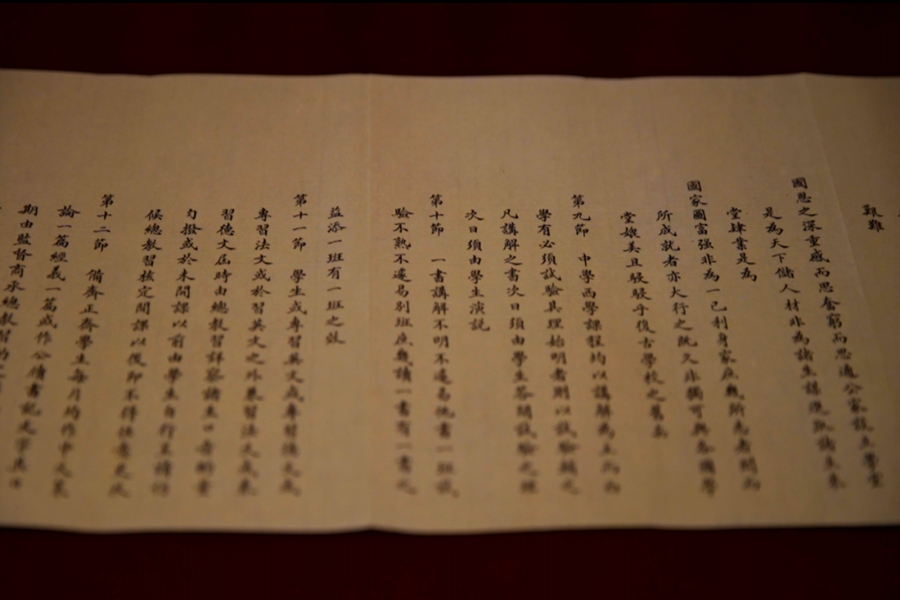 艱難
國恩之深重感而思奮窮而思通公家設立學堂
是為天下儲人材非為諸生謀
堂肄業是為
國家圖富強非為一己利身家庶幾所志者闊而
所成就者亦大行之既久非獨可與各國學
堂媲美且駸駸乎復古學校之舊矣
第九節 中學西學課程均以講解為主而西
學有必須試驗其理始明者則以試驗輔之
凡講解之書次日須由學生答問試驗之課
次日須由學生演說
第十節 一書講解不明不遽易他書一班試
驗不熟不遽易別班庶幾讀一書有一書之
益添一班有一班之效
第十一節 學生或專習英文或專習德文或
專習法文或於習英文之外兼習法文或兼
習德文屆時由總教習詳察諸生口音齡資
勻撥或於未開課以前由學生自行呈請仍
候總教習核定開課以後即不得
第十二節 備齋正齋學生每月均作中文策
論一篇經義一篇或作公牘書記文字
期由監督商承總教習